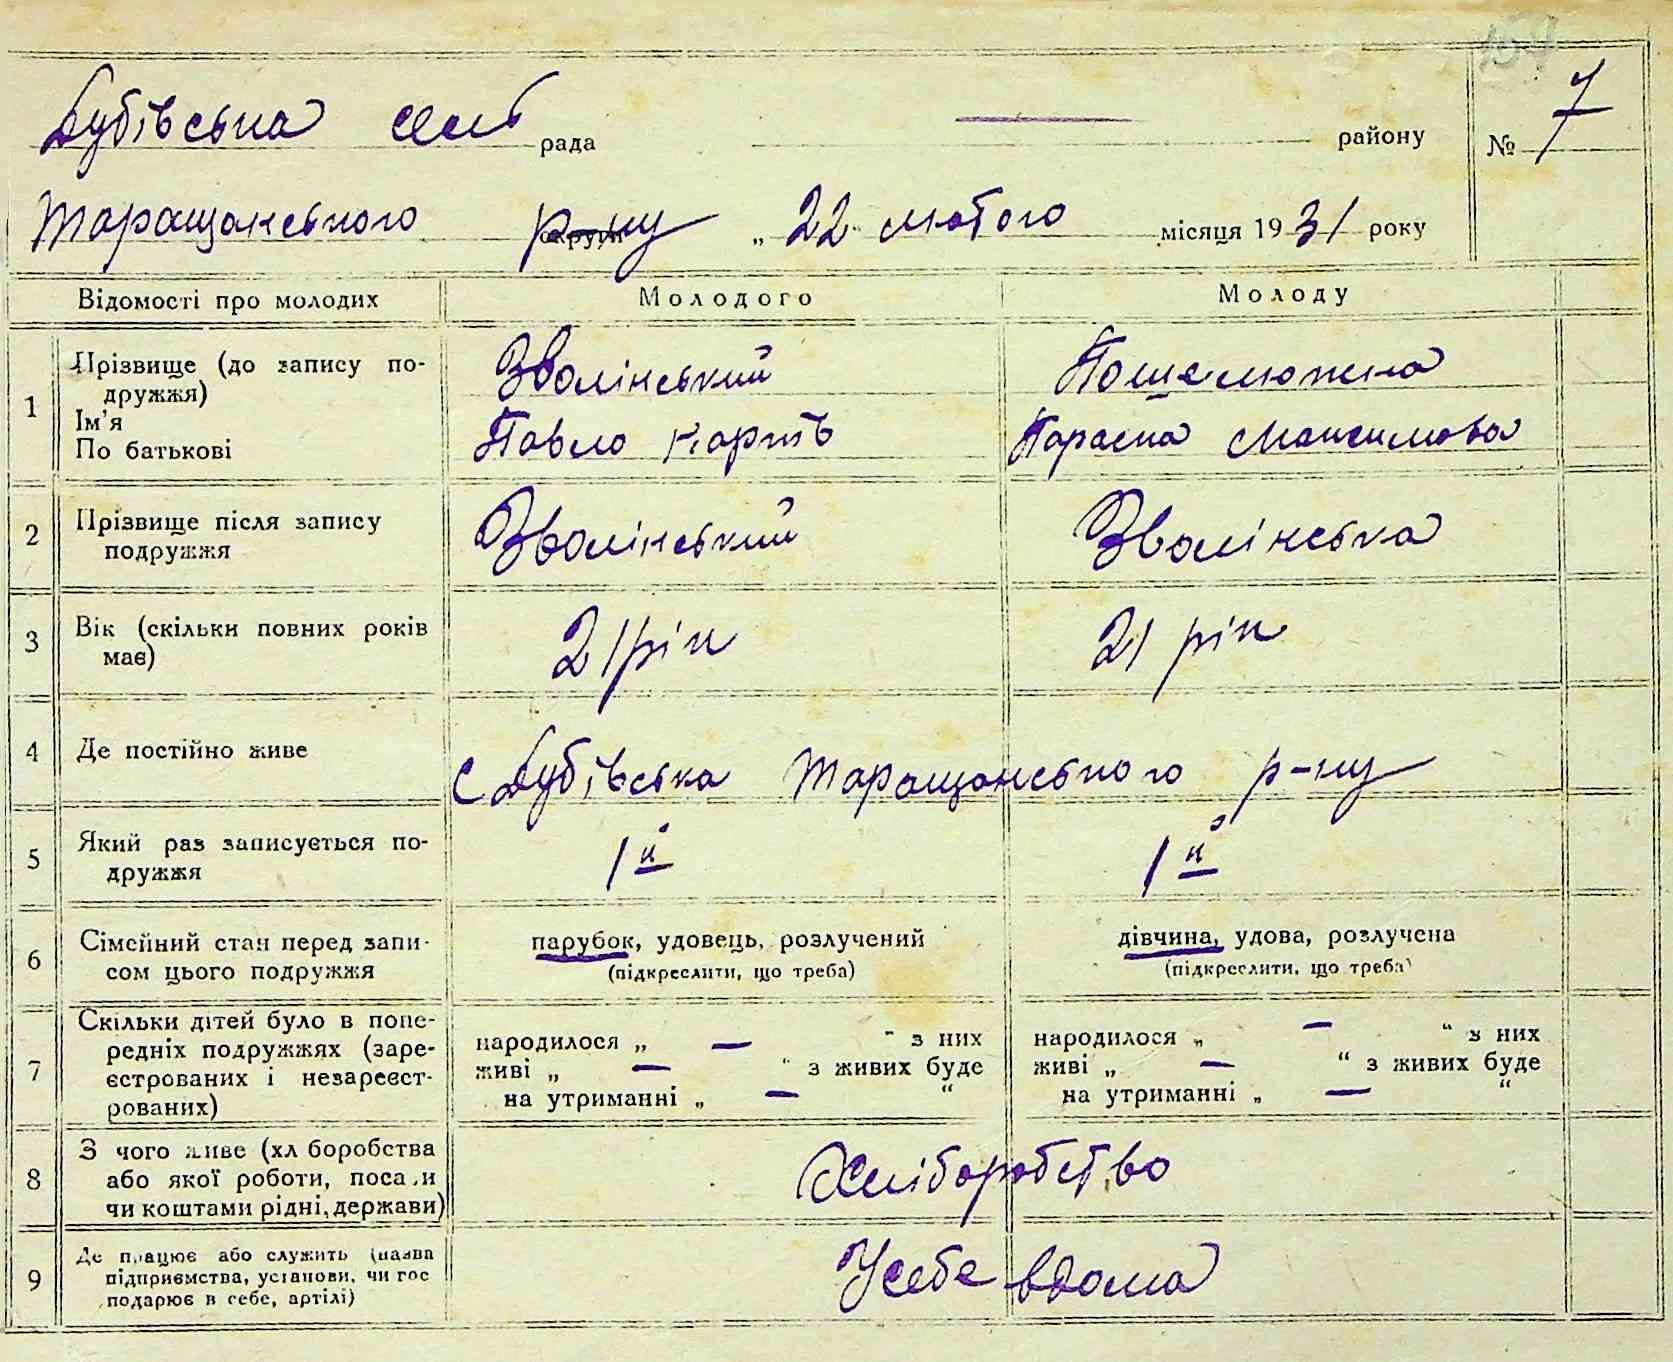 Дубівська сель рада районну № 7
Таращанського р-ну „ 22 лютого місяця 1931 року
Відомості про молодих Молодого Молоду
1 Прізвище (до запису по- Зволінський
дружжя)
Ім'я Павло Карпів Параска Максимова
По батькові
2 Прізвище після запису Зволінський Зволінська
подружжя
3 Вік (скільки повних років 21 рік 21 рік
має)
4 Де постійно живе с Дубівська Таращанського р-ну
5 Який раз записується по- 1й 1й
дружжя
6 Сімейний стан перед запи- парубок, удовець, розлучений дівчина, удова, розлучена
сом цього подружжя (підкреслити, що треба) (підкреслити, що треба)
7 Скільки дітей було в попе- народилося „ — “ з них народилося „ — “ з них
редніх подружжях (заре- живі „ — “ з живих буде живі „ — “ з живих буде
єстрованих і незареєст- на утриманні „ — “ на утриманні „ — “
рованих)
8 З чого живе (хліборобства Хліборобство
або якої роботи, посади
чи коштами рідні, держави)
9 Де працює або служить (назва Усебе вдома
підприємства, установи, чи гос
подарює в себе, артілі)